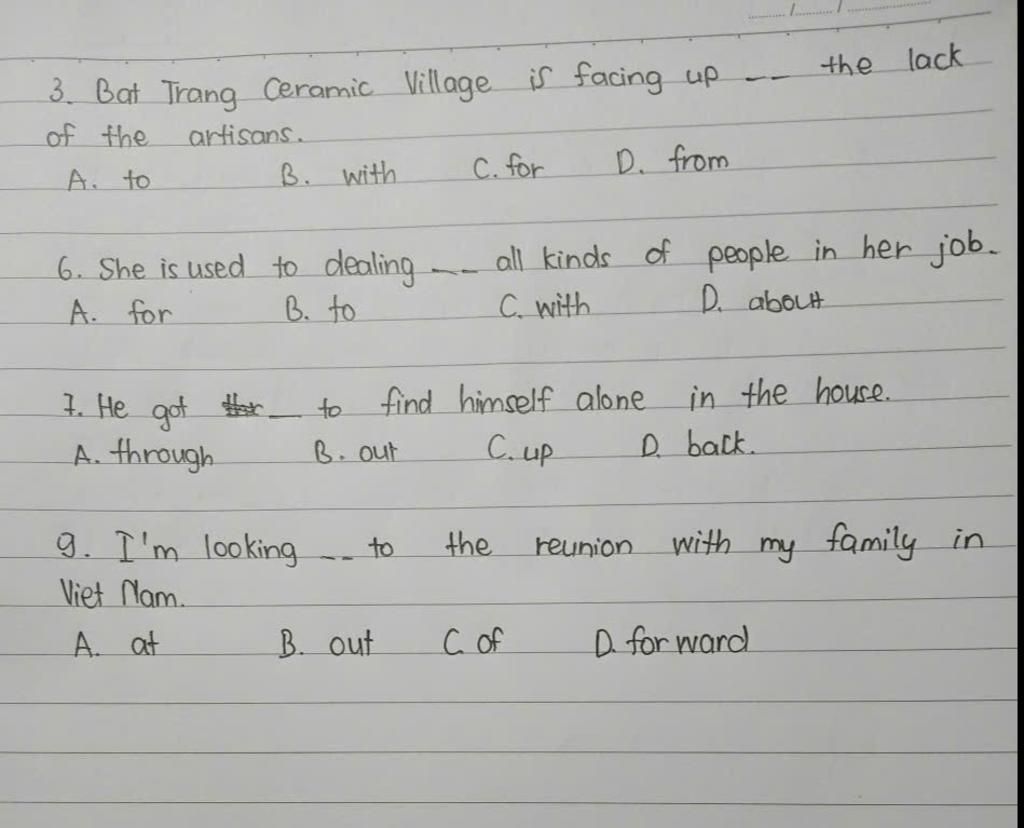 3. Bat Trang Ceramic Village is facing up -- the lack
of the artisans.
A. to B. with C. for D. from
6. She is used to dealing -- all kinds of people in her job.
A. for B. to C. with D. about
7. He got _ to find himself alone in the house.
A. through B. out C. up D. back.
9. I'm looking -- to the reunion with my family in
Viet Nam.
A. at B. out C. of D. forward